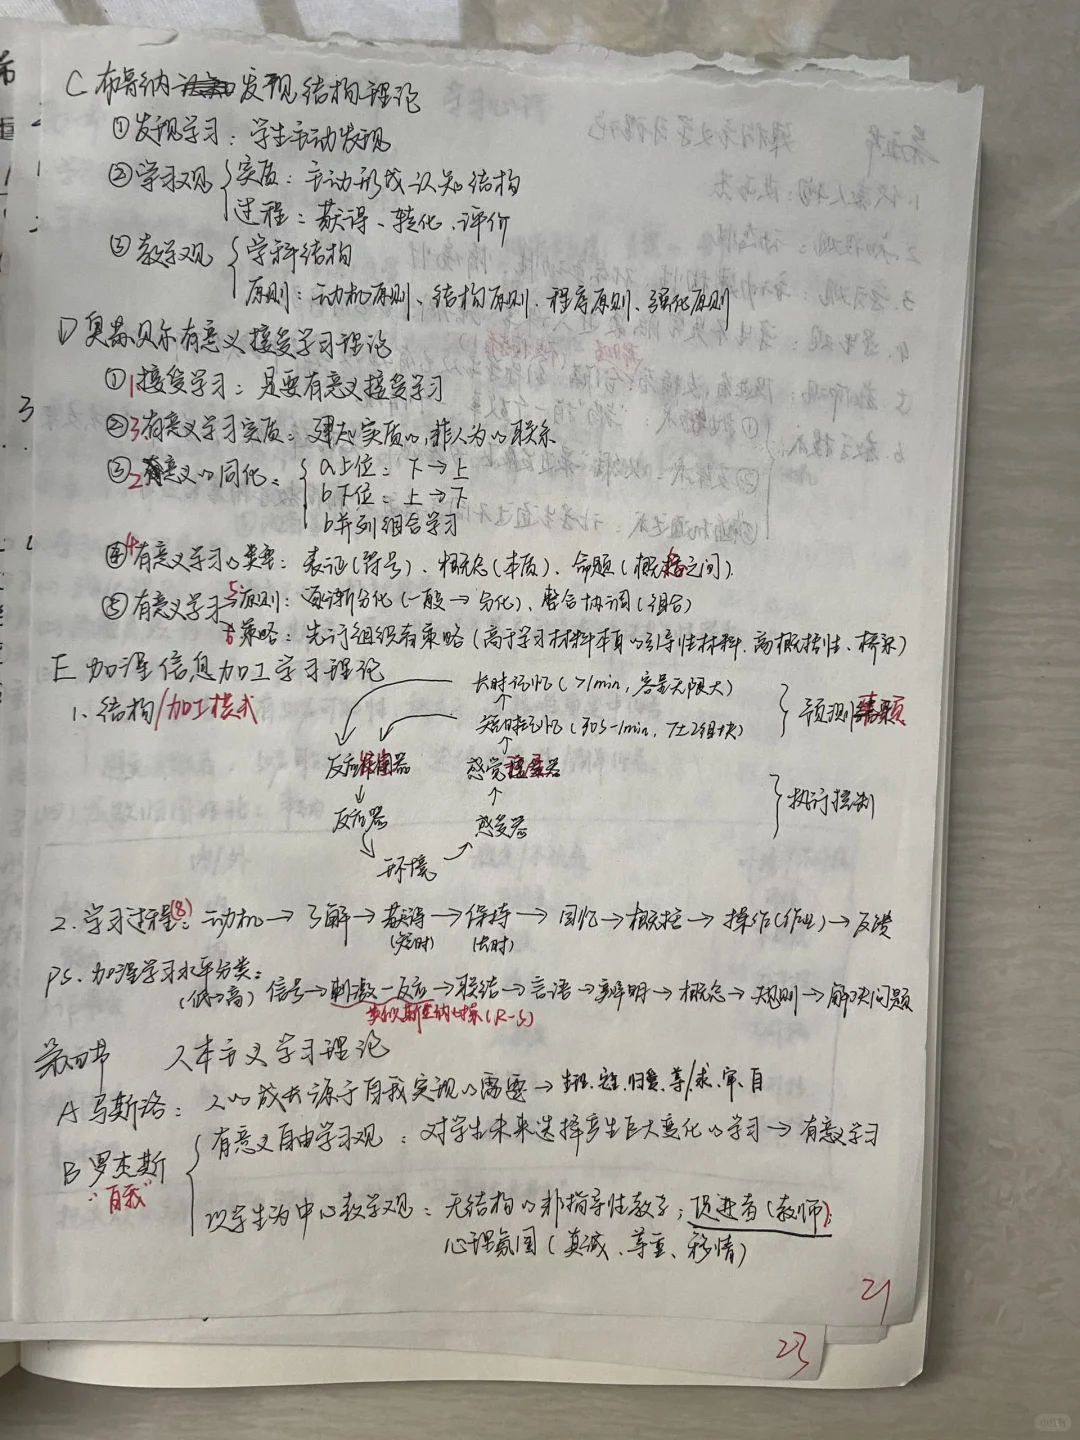 C 布鲁纳 发现结构理论
①发现学习：学生主动发现
②学习观 实质：主动形成认知结构
过程：获得、转化、评价
③教学观 学科结构
原则：动机原则、结构原则、程序原则、强化原则
D 奥苏贝尔有意义接受学习理论
①1接受学习：是要有意义接受学习
②3有意义学习实质：建起实质的，非人为的联系
③2有意义的同化： a上位：下→上
b下位：上→下
b并列组合学习
④4有意义学习的类型：表征(符号)、概念(本质)、命题(概念之间)
⑤有意义学习 5原则：逐渐分化(一般→分化)、整合协调(组合)
6策略：先行组织者策略(高于学习材料本身的引导性材料、高概括性、桥梁)
E 加涅信息加工学习理论
1、结构/加工模式
长时记忆(>1min，容量无限大)
短时记忆(30s-1min，7±2组块)
预测
反应 器 感觉 器
反应器 感受器
执行控制
环境
2.学习过程(8)：动机→了解→获得→保持→回忆→概括→操作(作业)→反馈
(短时) (长时)
PS.加涅学习水平分类：
(低→高) 信号→刺激-反应→联结→言语→辨明→概念→规则→解决问题
类似斯金纳 (R-S)
第四节 人本主义学习理论
A 马斯洛：人的成长源于自我实现的需要→生理、安全、归爱、尊/求、审、自
B 罗杰斯 有意义自由学习观：对学生未来选择产生巨大变化的学习→有意义学习
"自我"
以学生为中心教学观：无结构的非指导性教学；促进者(教师)；
心理氛围(真诚、尊重、移情)
21
23